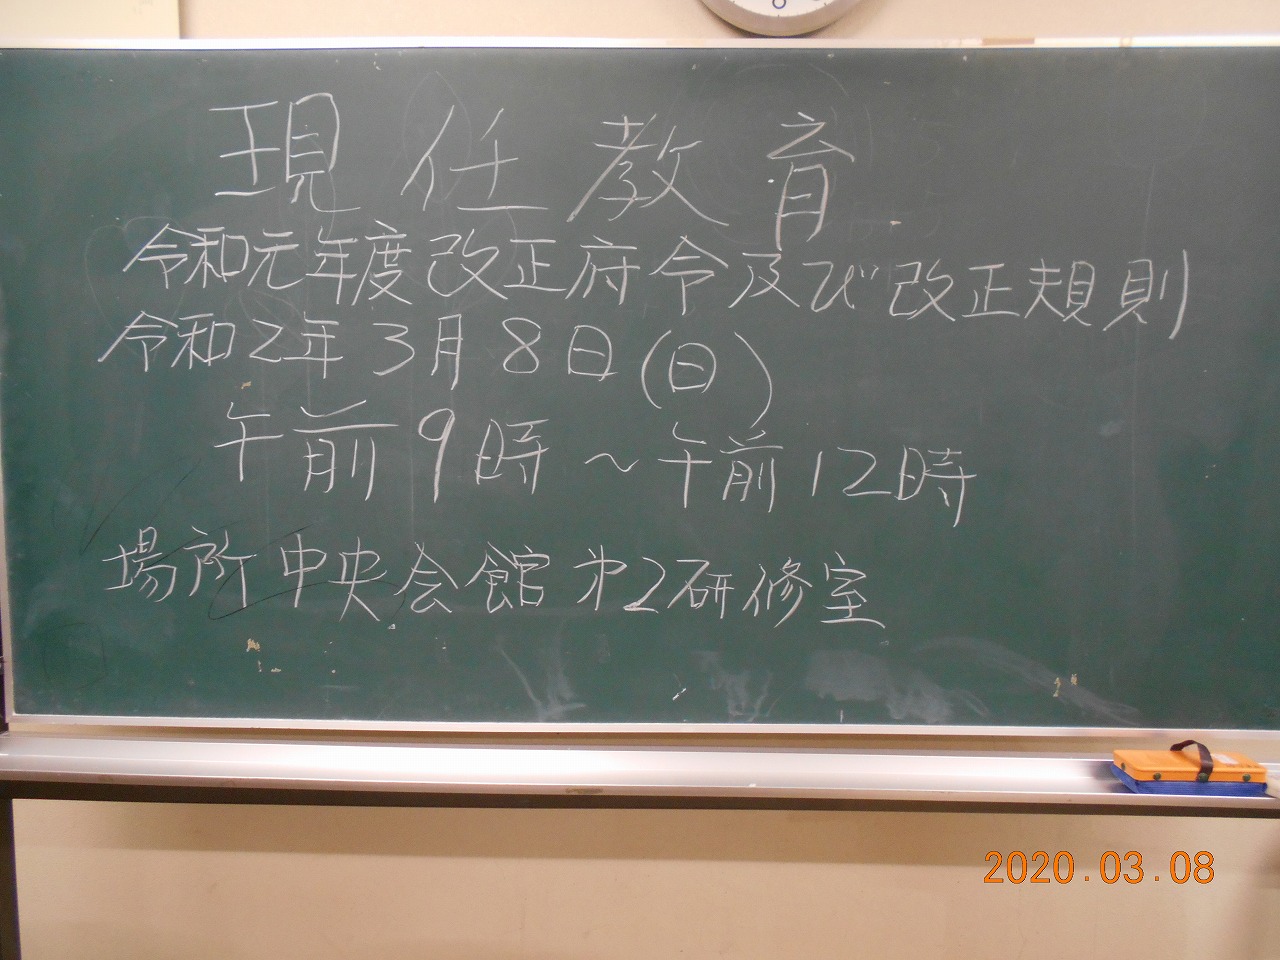 現任教育
令和元年度改正府令及び改正規則
令和2年3月8日(日)
午前9時～午前12時
場所 中央会館 㐧2研修室
2020.03.08